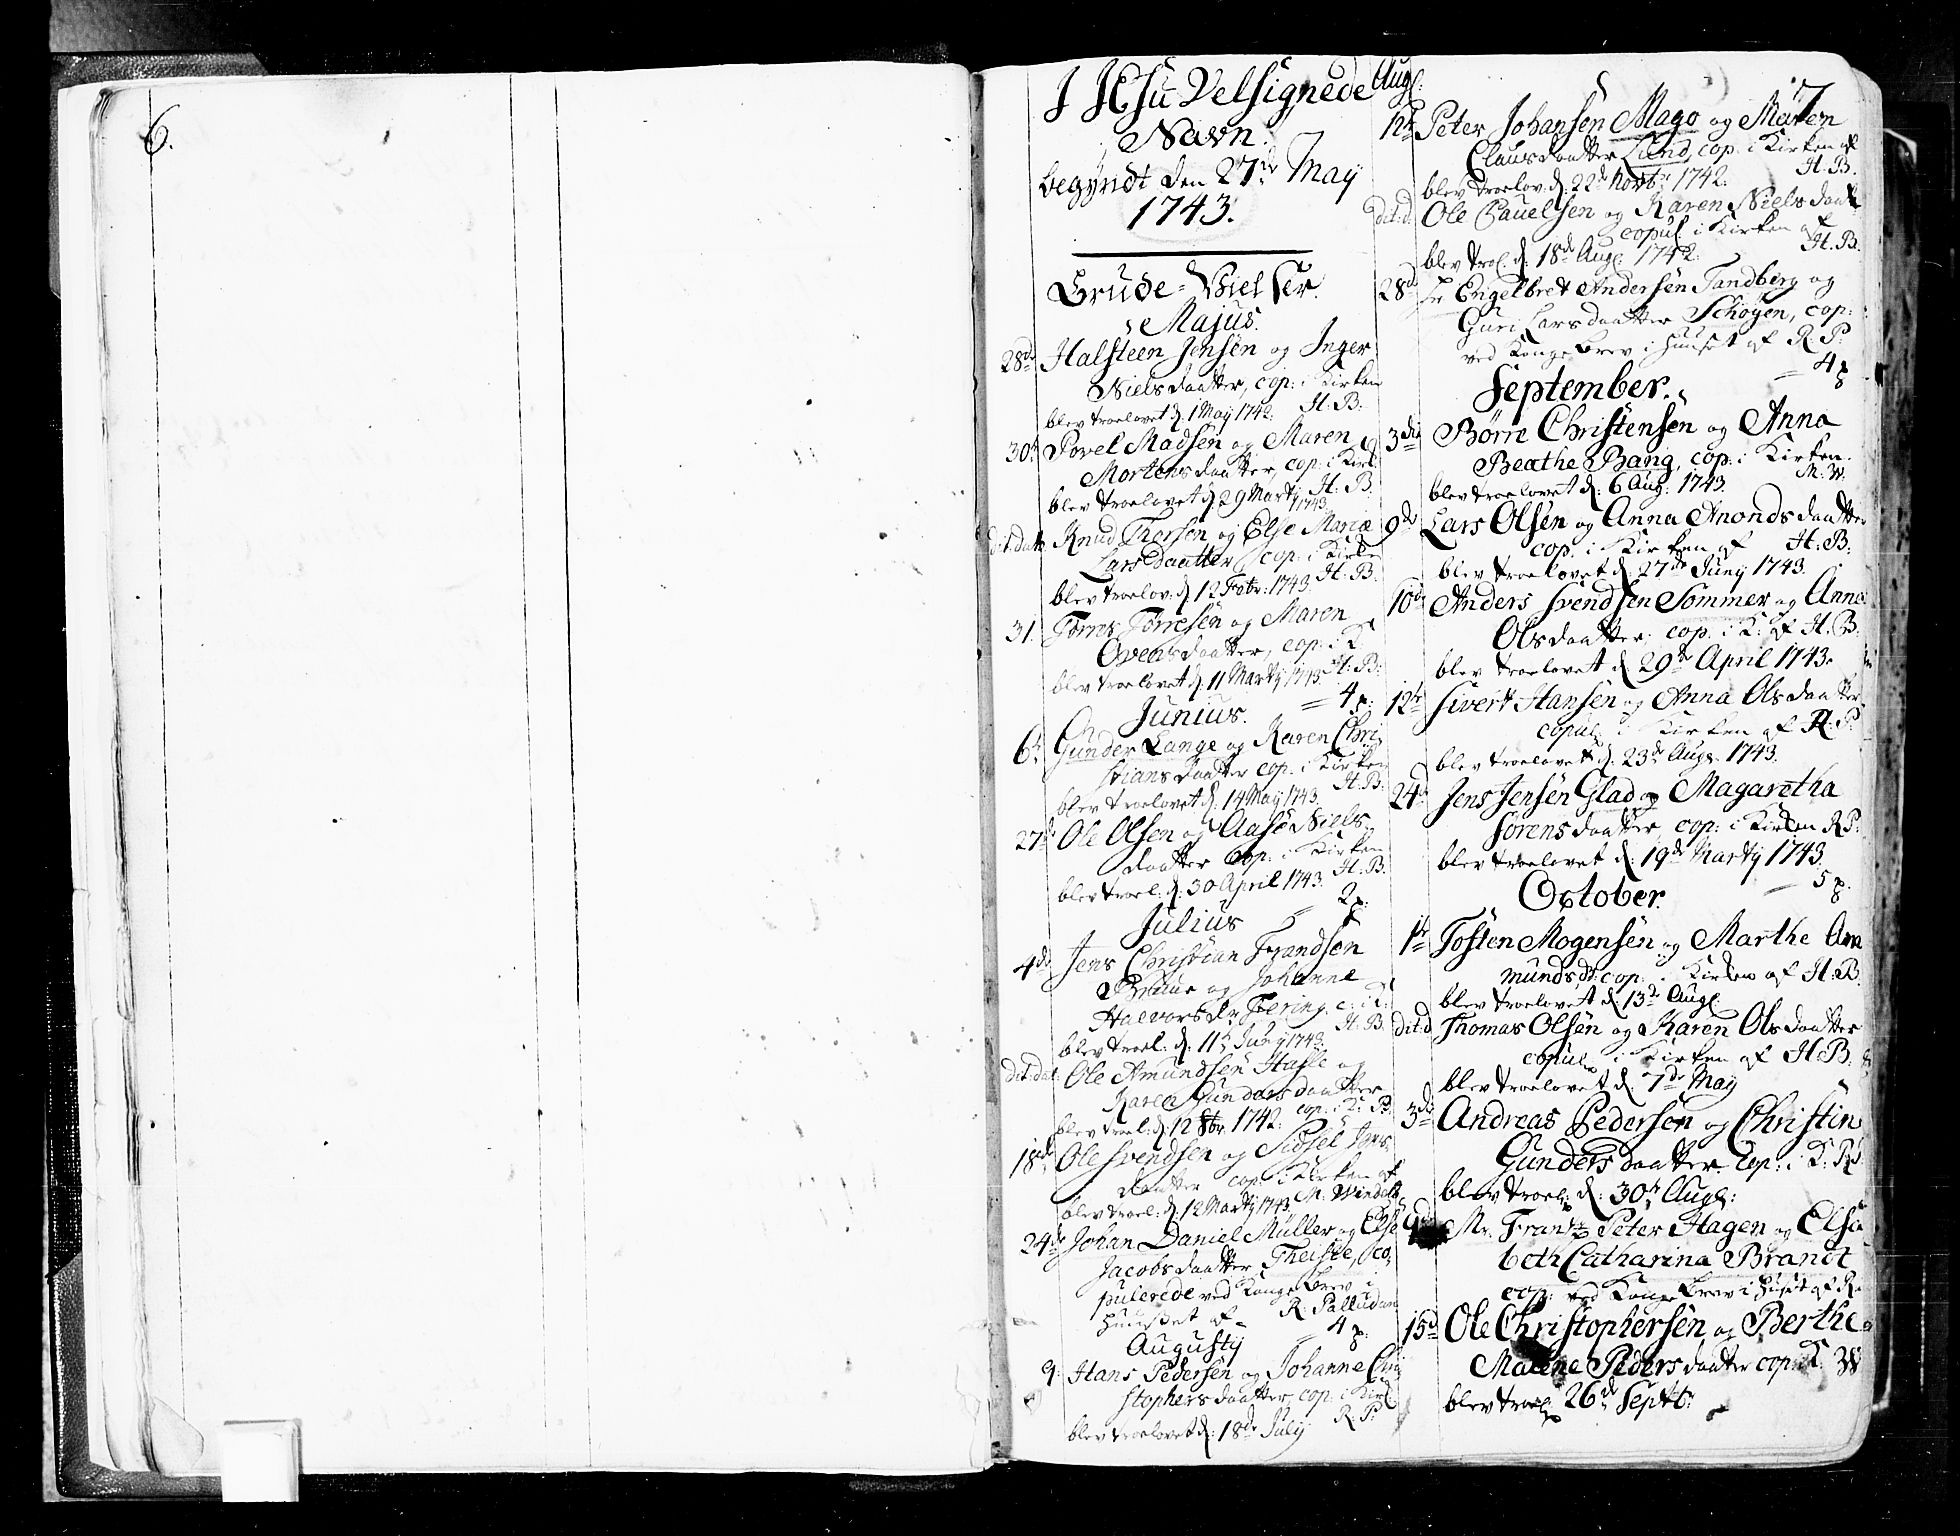 6.
I JEsu Velsignede
Navn.
begyndt den 27de May
1743.
Brude-Vielser.
Majus.
28de Halsteen Jensen og Inger
Nielsdaatter, cop: i Kirken
blev troelovet d. 1 May 1742. H: B:
30t Povel Madsen og Maren
Mortensdaatter, cop: i Kirk:
blev troelovet d. 29 Martj 1743. H: B:
dit: dat: Knud Thorsen og Else Maria
Larsdaatter cop: i Kirke
blev troelov: d. 12 Febr: 1743. H: B.
31. Torres Torresen og Maren
Ovensdaatter, cop: i K.
blev troelovet d. 11 Martj 1743 H: B:
= 4 p:
Junius.
6t Gunder Lange og Karen Chri
stiansdaatter cop: i Kirken
blev troelovet d. 14 May 1743. H: B:
27de Ole Olsen og Aase Niels
daatter Cop: i Kirken
blev troel: d: 30 April 1743. H: B.
= 2 p:
Julius
4de Jens Christian Frandsen
Bruun og Johanne
Halvorsdr Fering. c: i K:
blev troel: d. 11t Junj 1743. H: B.
dit: dat: Ole Amundsen Hasle og
Karen Gundersdaatter
blev troel: d. 12 8br. 1742. cop: i K: R: P.
18de Ole Svendsen og Sidsel Jens
daatter cop: i Kirken af
blev troel: d. 12 Martj 1743. M: Windelb
24de Johan Daniel Müller og Else
Jacobsdaatter Theiste, co,
pulerede ved Kongebrev i
Huuset af R: Palludan
= 4 p:
Augustij
9. Hans Pedersen og Johanne Chri
stophersdaatter, cop: i Kirk
blev troelovet d: 18de July R: P:
7
Augs:
12te Peter Johansen Mago og Maren
Clausdaatter Lund, cop: i Kirken af
blev troelov: d: 22de Novbr 1742. H: B.
dit: d. Ole Pauelsen og Karen Nielsdaatt
copul: i Kirken af
blev troel: d: 18de Aug: 1742. H: B.
28de Sr Engelbret Andersen Tandberg og
Guri Larsdaatter Schøyen, cop:
ved Kongebrev i Huuset af R: P:
= 4 p
September.
3die Børre Christensen og Anna
Beathe Bang, cop: i Kirken.
blev troelovet d: 6 Aug: 1743. M: W:
9de Lars Olsen og Anna Anondsdaatter
cop. i Kirken af H: B:
blev troelovet d: 27de Junj 1743.
10de Anders Svendsen Sommer og Anne
Olsdaatter. cop. i K: af H: B.
blev troelovet d. 29de April 1743.
12te Sivert Hansen og Anna Olsdaatter
copul: i Kirken af R: P:
blev troelovet d. 23de Aug: 1743.
24de Jens Jensen Glad og Magaretha
Sørensdaatter, cop: i Kirken R: P:
blev troelovet d: 19de Martj 1743.
= 5 p.
October.
1te Tosten Mogensen og Marthe Am
mundsdr cop. i Kirken af H: B.
blev troelovet d. 13de Aug:
dit: d. Thomas Olsen og Karen Olsdaatter
copul: i Kirken af H: B.
blev troelovet d. 7de May
3de Andreas Pedersen og Christin
Gundersdaatter. Cop: i K: R: P:
blev troel: d: 30t Aug:
9de Mr. Frantz Peter Hagen og Elsa
beth Catharina Brandt
cop: ved Kongebrev i Huset af R:
15de Ole Christophersen og Berthe
Malene Pedersdaatter cop: K: W
blev troel: 26de Septbr